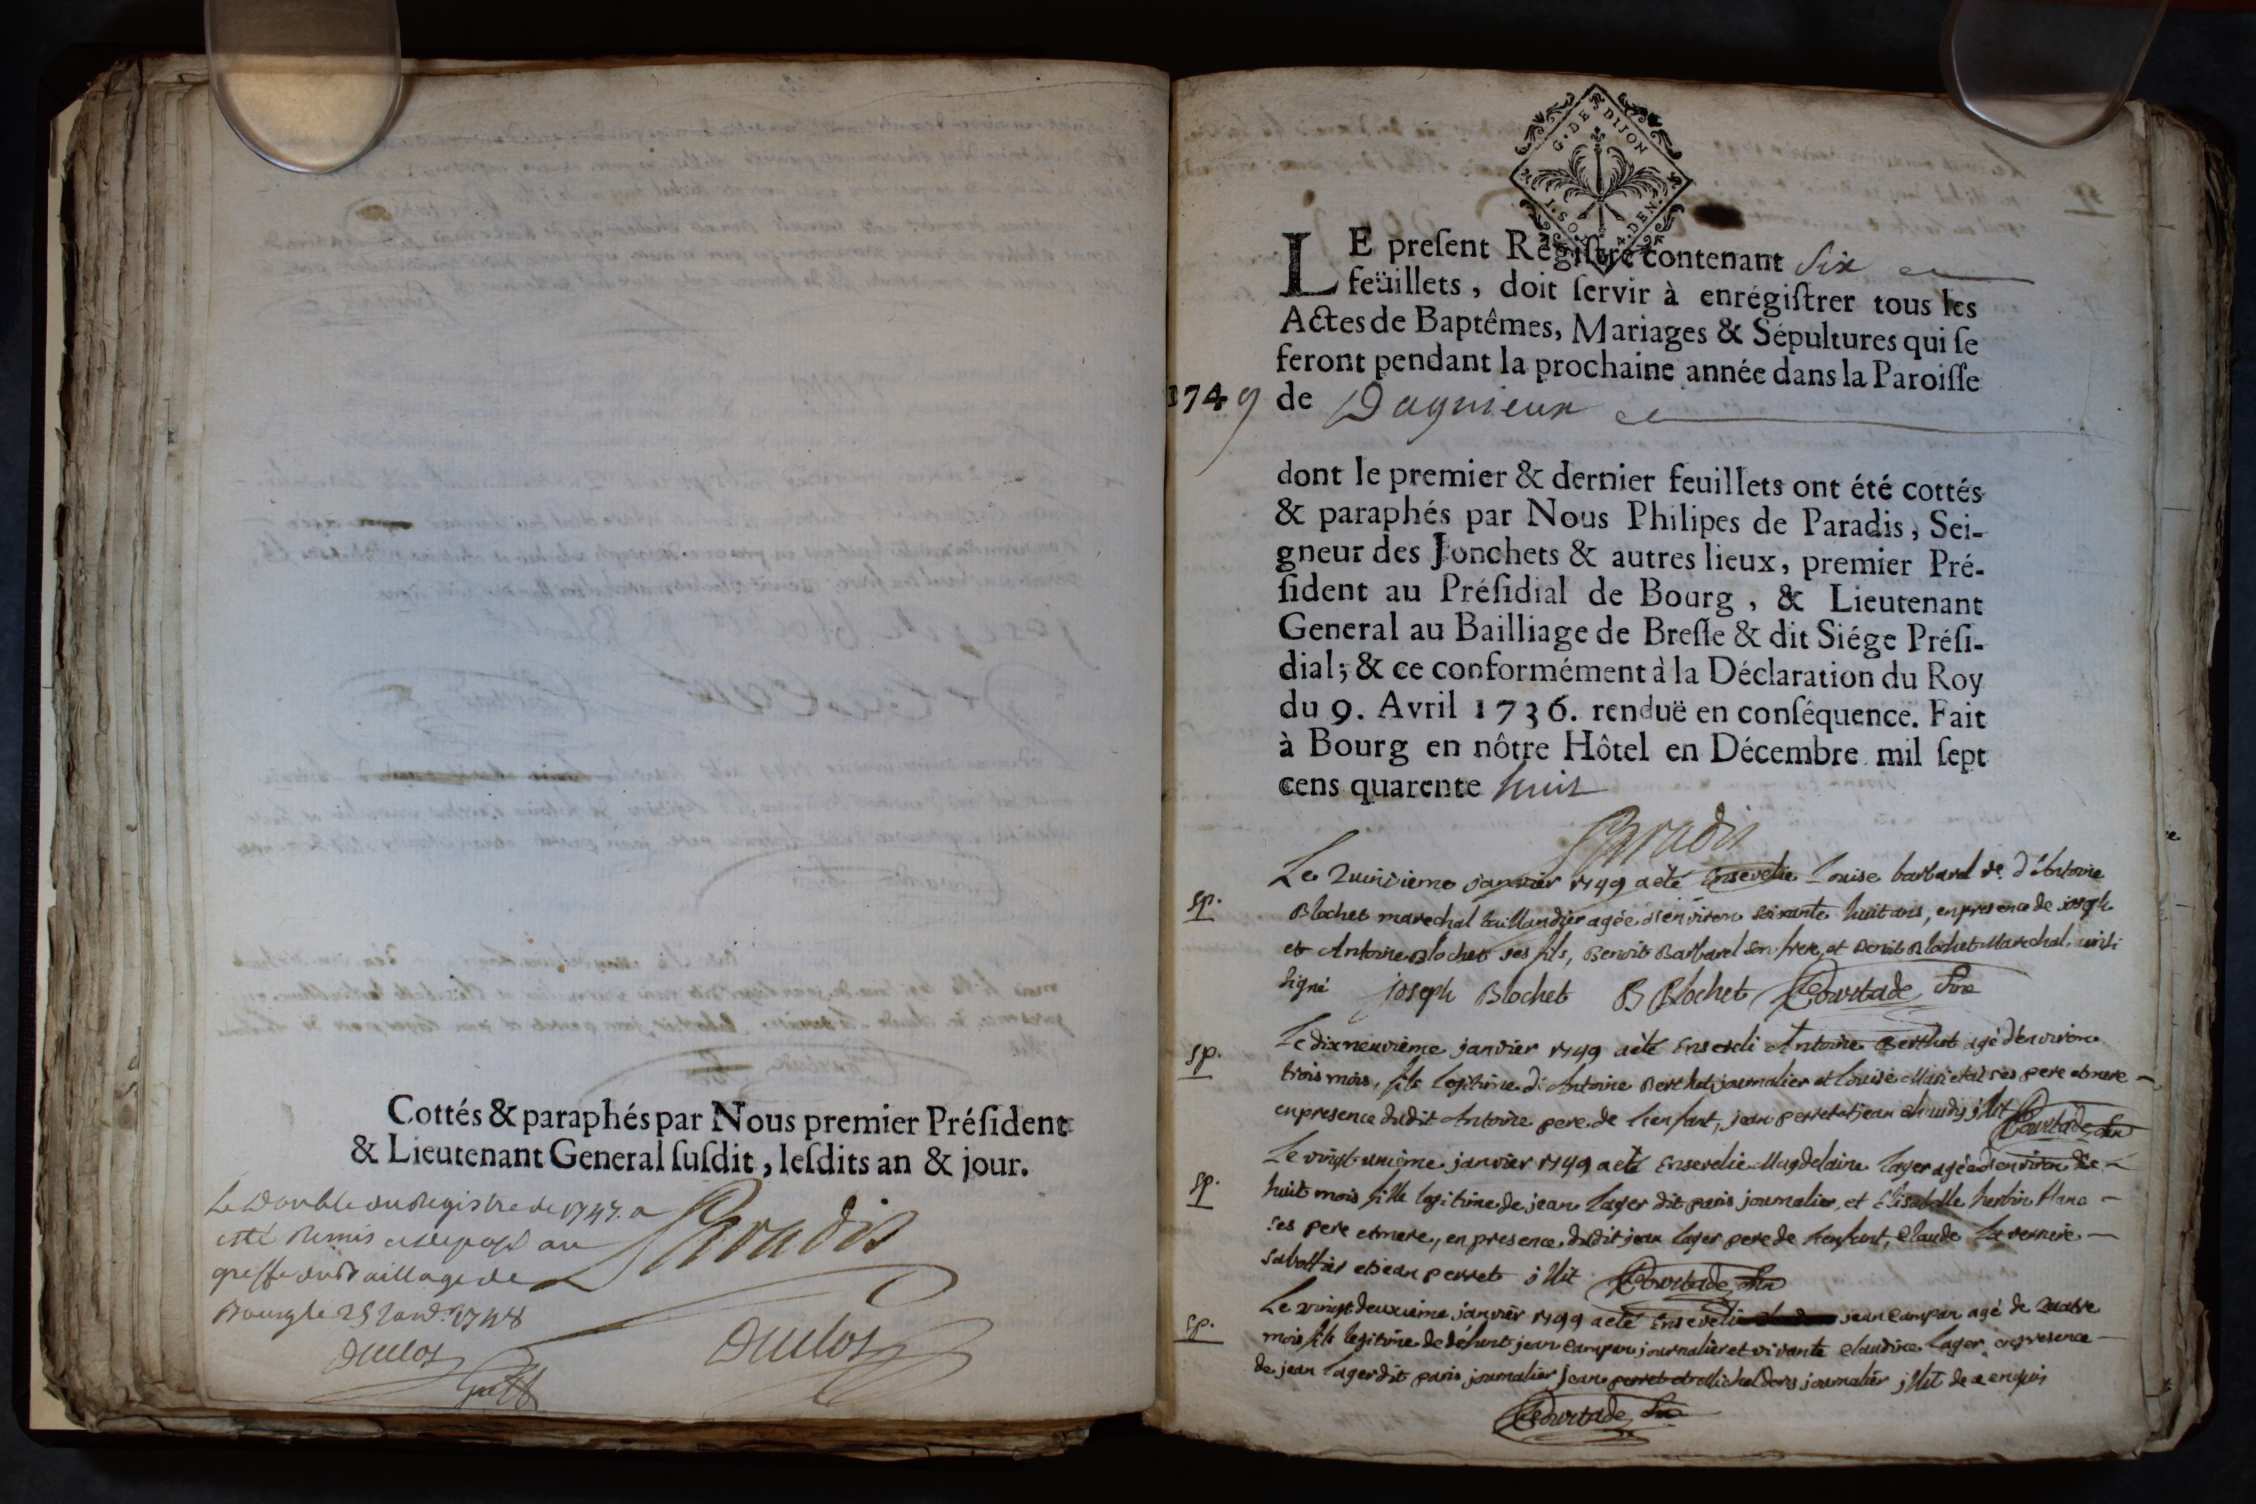 Cottés & paraphés par Nous premier Préſident
& Lieutenant General ſuſdit, leſdits an & jour.
Le Double du Registre de 1747. a
esté Remis et deposé au
greffe du Baillage de
Bourg le 25 Janv. 1748
Paradis
Duclos
Duclos
G. DE DIJON
LE preſent Regiſtre contenant Six
feüillets, doit ſervir à enrégiſtrer tous les
Actes de Baptêmes, Mariages & Sépultures qui ſe
feront pendant la prochaine année dans la Paroiſſe
1749 de Dagnieux
dont le premier & dernier feuillets ont été cottés
& paraphés par Nous Philipes de Paradis, Sei-
gneur des Jonchets & autres lieux, premier Pré-
ſident au Préſidial de Bourg, & Lieutenant
General au Bailliage de Breſſe & dit Siége Préſi-
dial; & ce conformément à la Déclaration du Roy
du 9. Avril 1736. renduë en conſéquence. Fait
à Bourg en nôtre Hôtel en Décembre mil ſept
cens quarente huit
Paradis
Le Quinzieme janvier 1749 a eté Ensevelie Louise barbarel ve. d'Antoine
sp. Blochet marechal taillandier agée d'environ soixante huit ans, en presence de joseph
et Antoine Blochet ses fils, Benoit Barbarel son frere, et Benoit Blochet Marechal
signé joseph Blochet B Blochet Courtade
Le dixneuvieme janvier 1749 a eté Enseveli Antoine Berthet agé d'environ
sp. trois mois, fils legitime d'Antoine Berthet journalier et Louise ses pere et mere
en presence dudit Antoine pere de l'enfant, jean perret et jean Courtade
Le vingt-unieme janvier 1749 a eté Ensevelie Magdelaine Lager agée d'environ dix
sp. huit mois fille legitime de jean Lager dit paris journalier, et Elisabelle
ses pere et mere, en presence dudit jean Lager pere de l'enfant, Claude
sabottier et jean perret Courtade
Le vingt deuxieme janvier 1749 a eté Enseveli jean Campan agé de Quatre
sp. mois fils legitime de defunt jean Campan journalier et vivante Claudine Lager, en presence
de jean Lager dit paris journalier jean perret et Michel journalier de ce enquis
Courtade